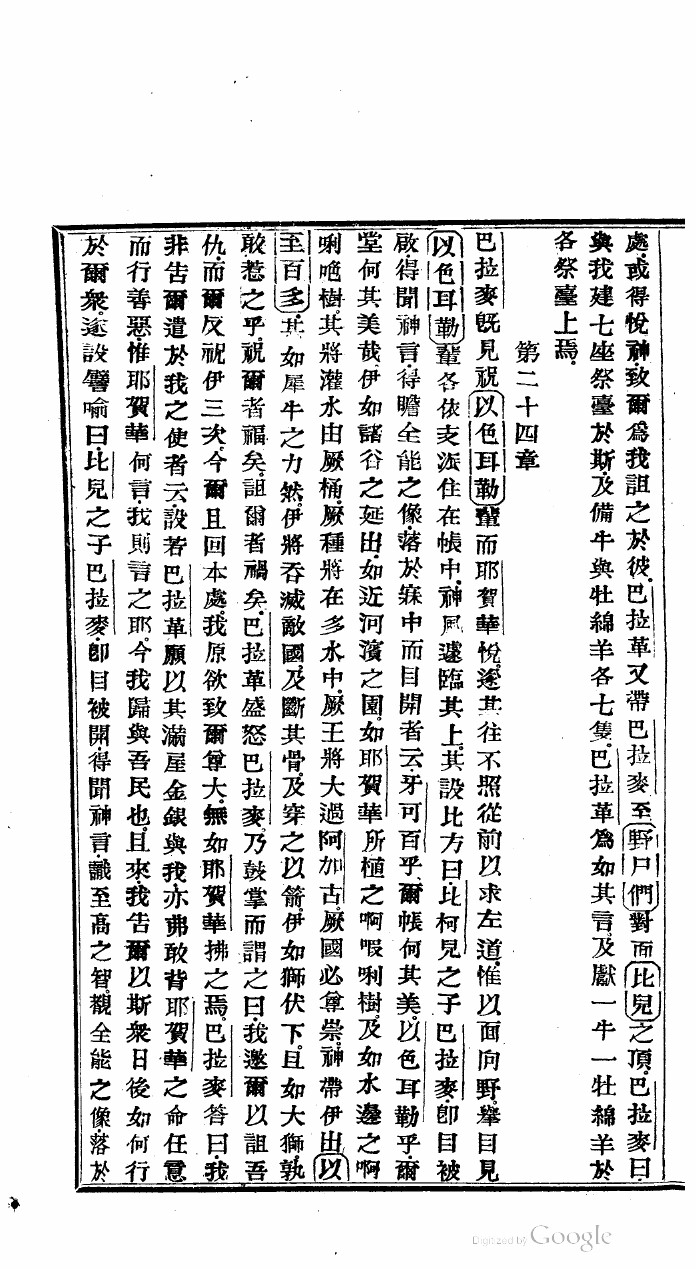 處或得悅神致爾爲我詛之於彼巴拉革又帶巴拉麥至野尸們對面比兒之頂巴拉麥曰
與我建七座祭臺於斯及備牛與牡綿羊各七隻巴拉革爲如其言及獻一牛一牡綿羊於
各祭臺上焉
第二十四章
巴拉麥既見祝以色耳勒輩而耶賀華悅遂其往不照從前以求左道惟以面向野舉目見
以色耳勒輩各依支派住在帳中神風遽臨其上其設比方曰比柯兒之子巴拉麥卽目被
啟得聞神言得瞻全能之像落於寐中而目開者云牙可百乎爾帳何其美以色耳勒乎爾
堂何其美哉伊如諸谷之延出如近河濱之園如耶賀華所植之啊㗇唎樹及如水邊之啊
唎唿樹其將灌水由厥桶厥種將在多水中厥王將大過阿加古厥國必尊崇神帶伊出以
至百多其如犀牛之力然伊將吞滅敵國及斷其骨及穿之以箭伊如獅伏下且如大獅孰
敢惹之乎祝爾者福矣詛爾者禍矣巴拉革盛怒巴拉麥乃鼓掌而謂之曰我邀爾以詛吾
仇而爾反祝伊三次今爾且回本處我原欲致爾尊大無如耶賀華拂之焉巴拉麥答曰我
非告爾遣於我之使者云設若巴拉革願以其滿屋金銀與我亦弗敢背耶賀華之命任意
而行善惡惟耶賀華何言我則言之耶今我歸與吾民也且來我告爾以斯衆日後如何行
於爾衆遂設譬喻曰比兒之子巴拉麥卽目被開得聞神言識至高之智覩全能之像落於
Digitized by Google